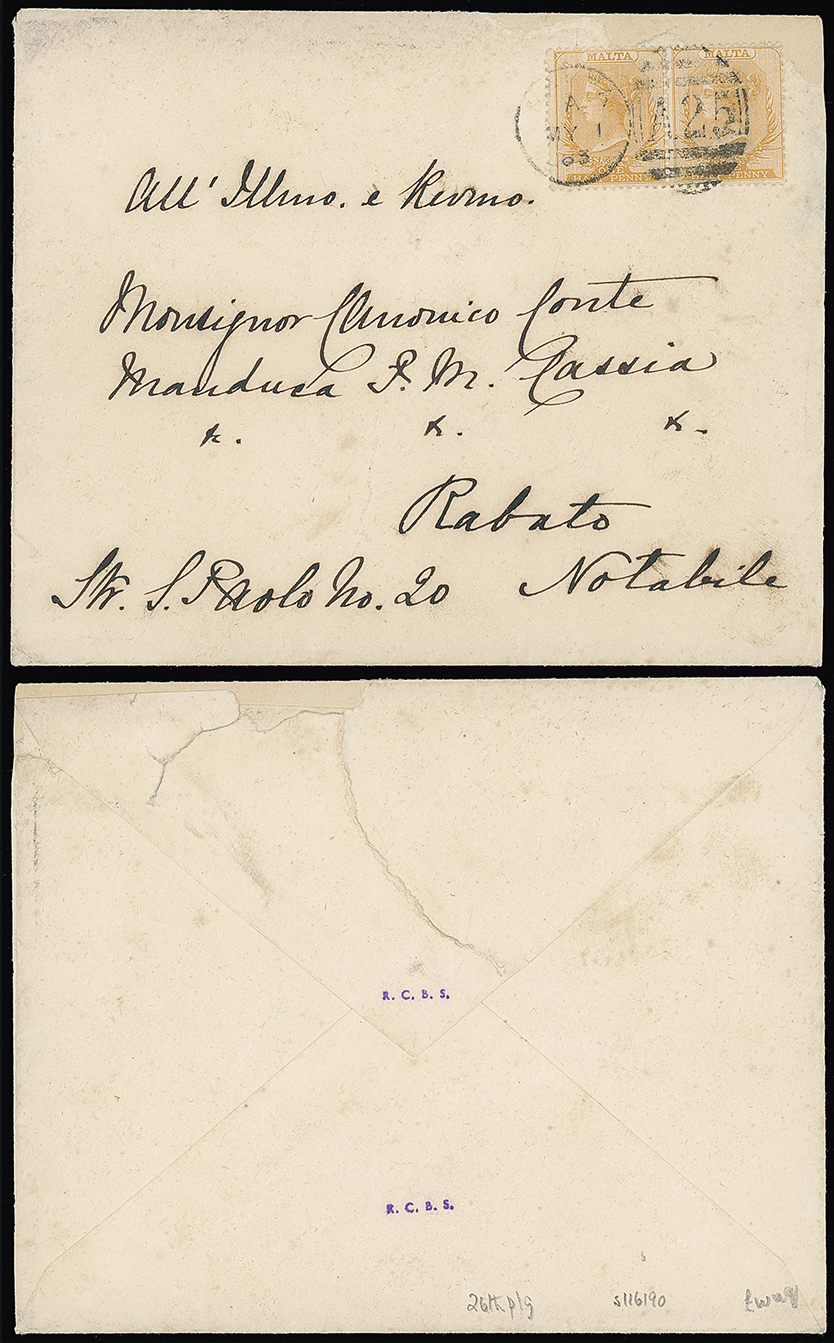 MALTA MALTA
A
MY 1
83
A25
HALF PENNY HALF PENNY
All' Illmo. e Revmo.
Monsignor Canonico Conte
Manduca P. M. Cassia
&. &. &.
Rabato
Str. S. Paolo No. 20 Notabile
R. C. B. S.
R. C. B. S.
S116190